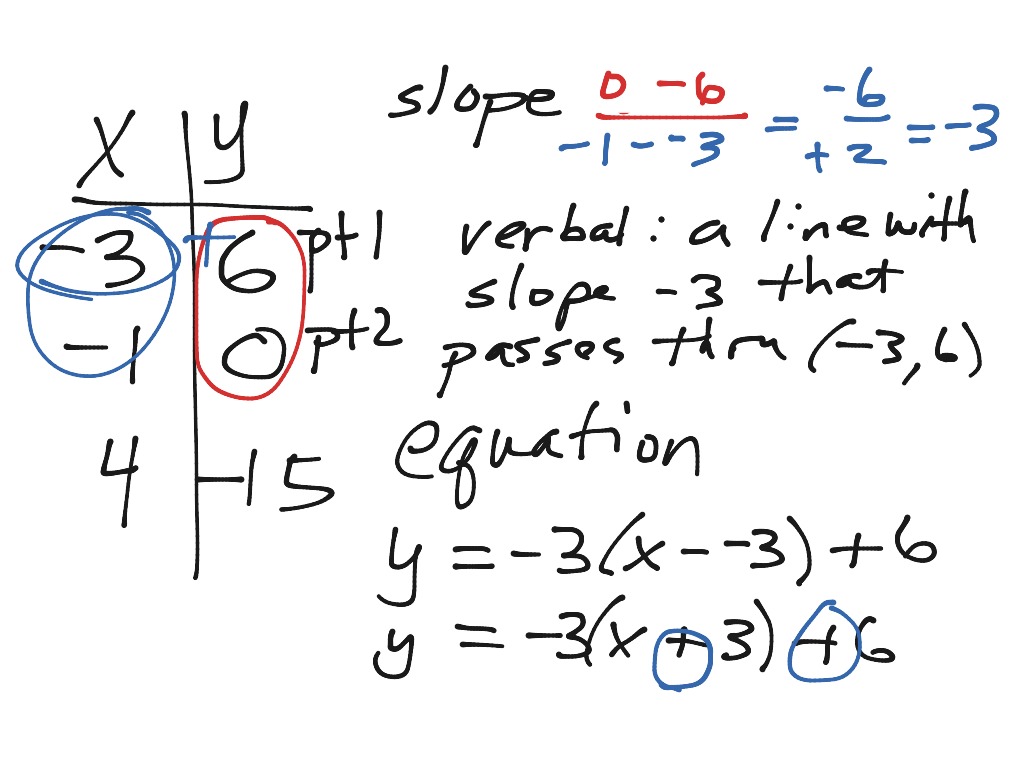 x y
-3 +6 pt1
-1 0 pt2
4 -15
slope 0 - 6 / -1 - -3 = -6 / +2 = -3
verbal: a line with
slope -3 that
passes thru (-3, 6)
equation
y = -3(x - -3) + 6
y = -3(x + 3) + 6